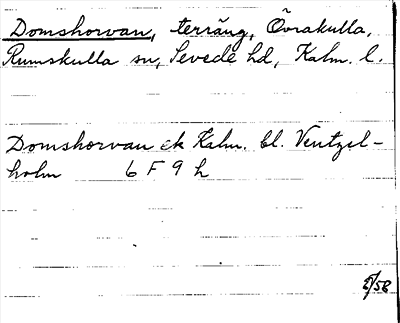 Domshorvan, terräng, Övrakulla,
Rumskulla sn, Sevede hd, Kalm. l.
Domshorvan ek Kalm. bl. Ventzel-
holm 6 F 9 h
/58